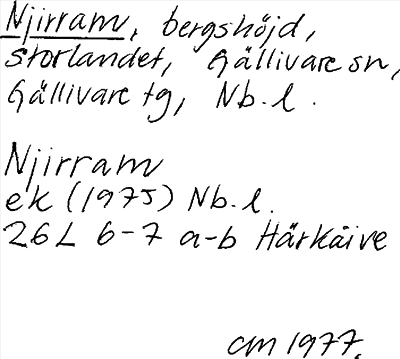 Njirram, bergshöjd,
Storlandet, Gällivare sn,
Gällivare tg, Nb. l.
Njirram
ek (1975) Nb. l.
26L 6-7 a-b Härkäive
CM 1977.